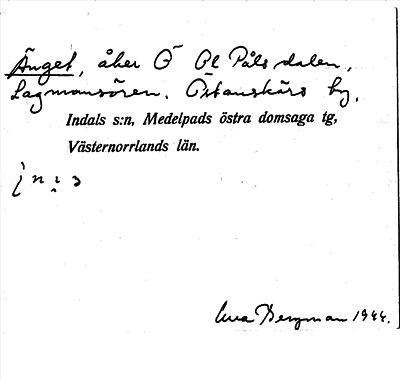 Änget, åker Ö Ol Påls dalen,
Lagmansören. Östanskärs by.
Indals s:n, Medelpads östra domsaga tg,
Västernorrlands län.
Bergman 1944.